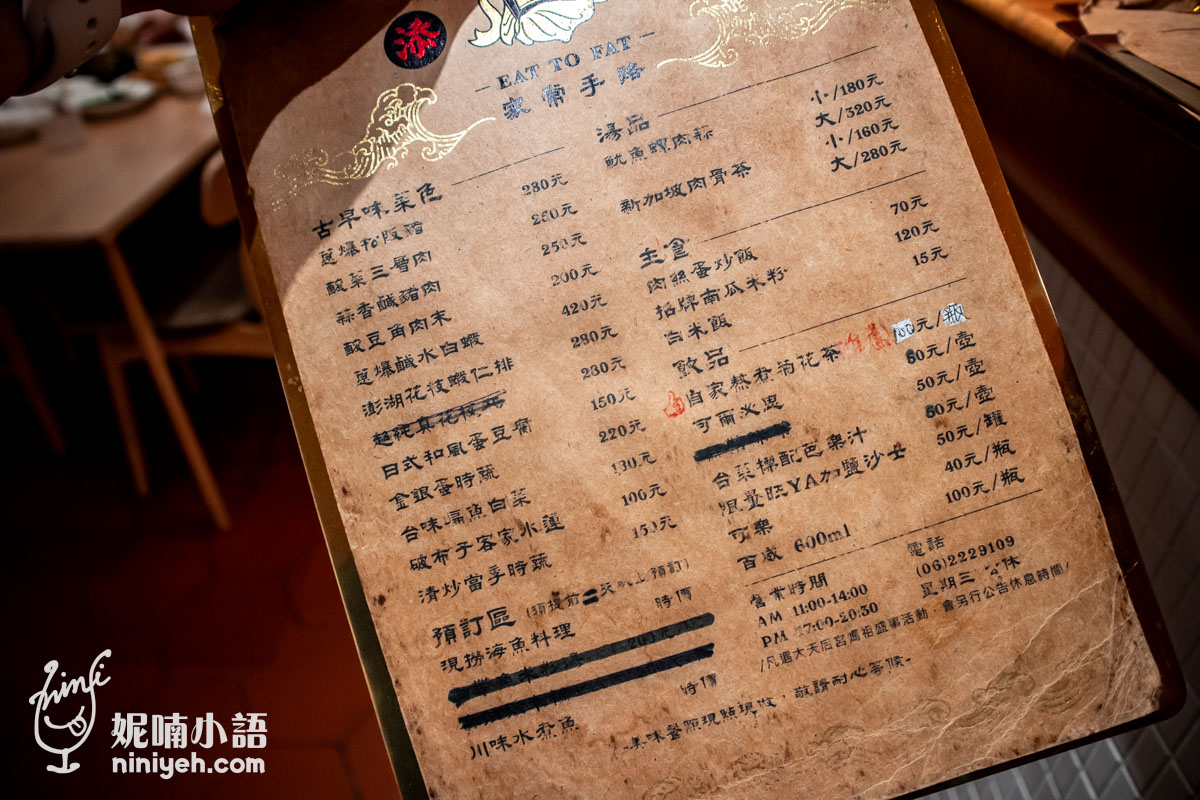 泳
EAT TO FAT
家常手路
古早味菜色
蔥爆松阪豬 280元
酸菜三層肉 260元
蒜香鹹豬肉 250元
酸豆角肉末 200元
蔥爆鹹水白蝦 420元
澎湖花枝蝦仁排 280元
230元
日式和風蛋豆腐 150元
金銀蛋時蔬 220元
台味扁魚白菜 130元
破布子客家水蓮 100元
清炒當季時蔬 150元
預訂區 (須提前二天以上預訂)
現撈海魚料理 時價
川味水煮魚 時價
湯品
魷魚螺肉蒜 小/180元
大/320元
新加坡肉骨茶 小/160元
大/280元
主食
肉絲蛋炒飯 70元
招牌南瓜米粉 120元
白米飯 15元
飲品
自家熬煮菊花茶 元/瓶
可爾必思 60元/壺
50元/壺
台菜標配芭樂汁 60元/壺
限量旺YA加鹽沙士 50元/罐
可樂 40元/瓶
百威 600ml 100元/瓶
營業時間
AM 11:00-14:00
PM 17:00-20:30
電話
(06)2229109
星期三 公休
/凡遇大天后宮媽祖盛事活動，會另行公告休息時間/
-美味餐點現點現做，敬請耐心等候-
ninfi
妮喃小語
niniyeh.com